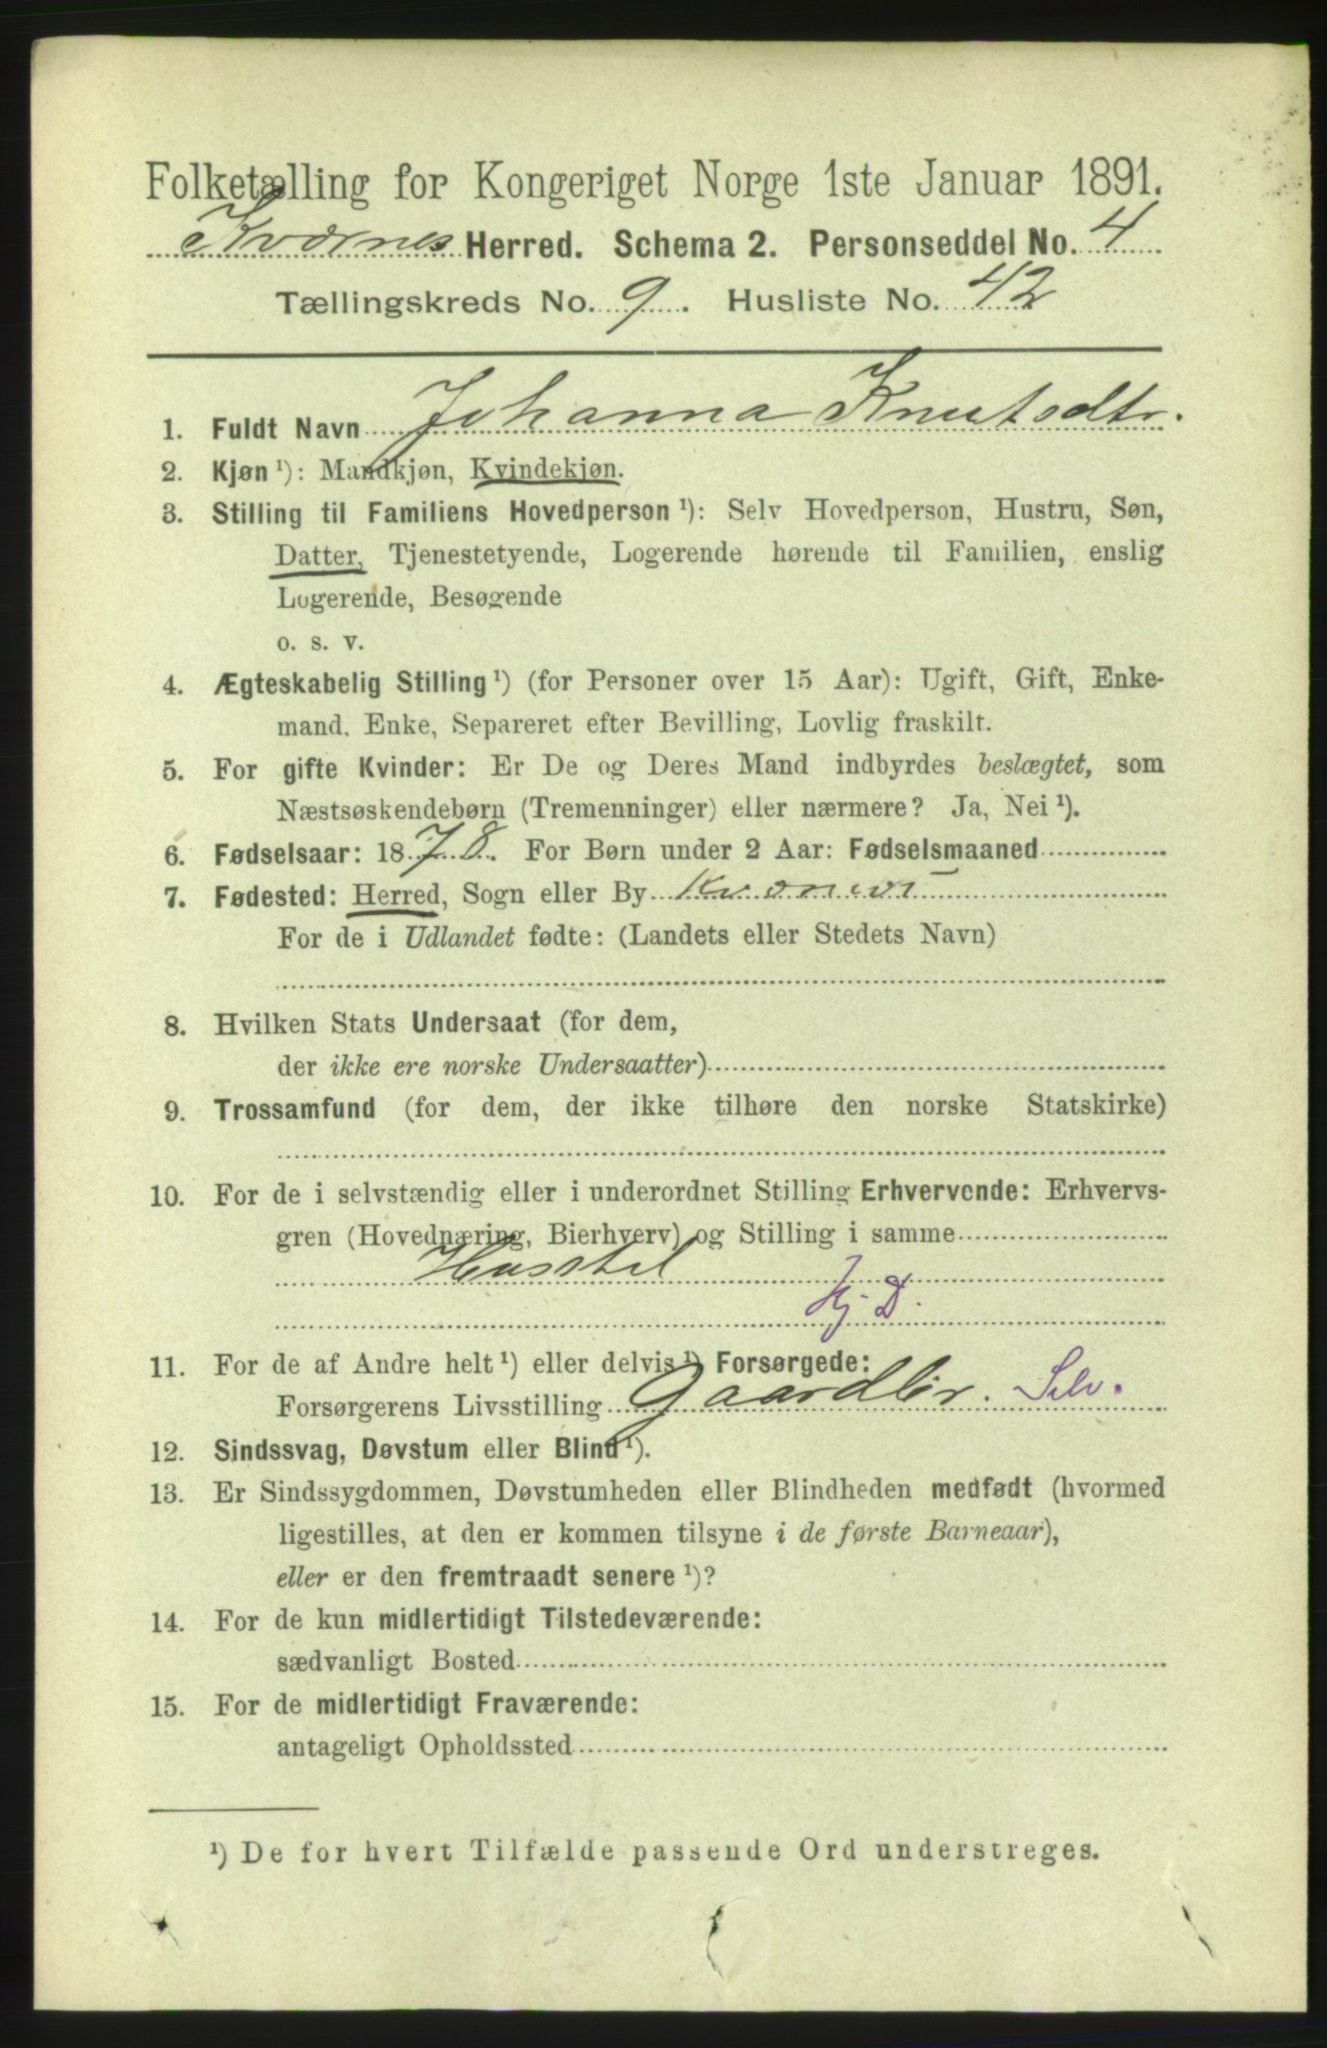 Folketælling for Kongeriget Norge 1ste Januar 1891.
Kværnes Herred. Schema 2. Personseddel No. 4
Tællingskreds No. 9. Husliste No. 42
1. Fuldt Navn Johanna Knutsdtr.
2. Kjøn ¹): Mandkjøn, Kvindekjøn.
3. Stilling til Familiens Hovedperson ¹): Selv Hovedperson, Hustru, Søn,
Datter, Tjenestetyende, Logerende hørende til Familien, enslig
Logerende, Besøgende
o. s. v.
4. Ægteskabelig Stilling ¹) (for Personer over 15 Aar): Ugift, Gift, Enke-
mand, Enke, Separeret efter Bevilling, Lovlig fraskilt.
5. For gifte Kvinder: Er De og Deres Mand indbyrdes beslægtet, som
Næstsøskendebørn (Tremenninger) eller nærmere? Ja, Nei ¹).
6. Fødselsaar: 1878. For Børn under 2 Aar: Fødselsmaaned
7. Fødested: Herred, Sogn eller By
For de i Udlandet fødte: (Landets eller Stedets Navn)
8. Hvilken Stats Undersaat (for dem,
der ikke ere norske Undersaatter)
9. Trossamfund (for dem, der ikke tilhøre den norske Statskirke)
10. For de i selvstændig eller i underordnet Stilling Erhvervende: Erhvervs-
gren (Hovednæring, Bierhverv) og Stilling i samme
Husstel
Hj. D.
11. For de af Andre helt ¹) eller delvis ¹) Forsørgede:
Forsørgerens Livsstilling Gaardbr. Selv.
12. Sindssvag, Døvstum eller Blind ¹).
13. Er Sindssygdommen, Døvstumheden eller Blindheden medfødt (hvormed
ligestilles, at den er kommen tilsyne i de første Barneaar),
eller er den fremtraadt senere ¹)?
14. For de kun midlertidigt Tilstedeværende:
sædvanligt Bosted
15. For de midlertidigt Fraværende:
antageligt Opholdssted
¹) De for hvert Tilfælde passende Ord understreges.